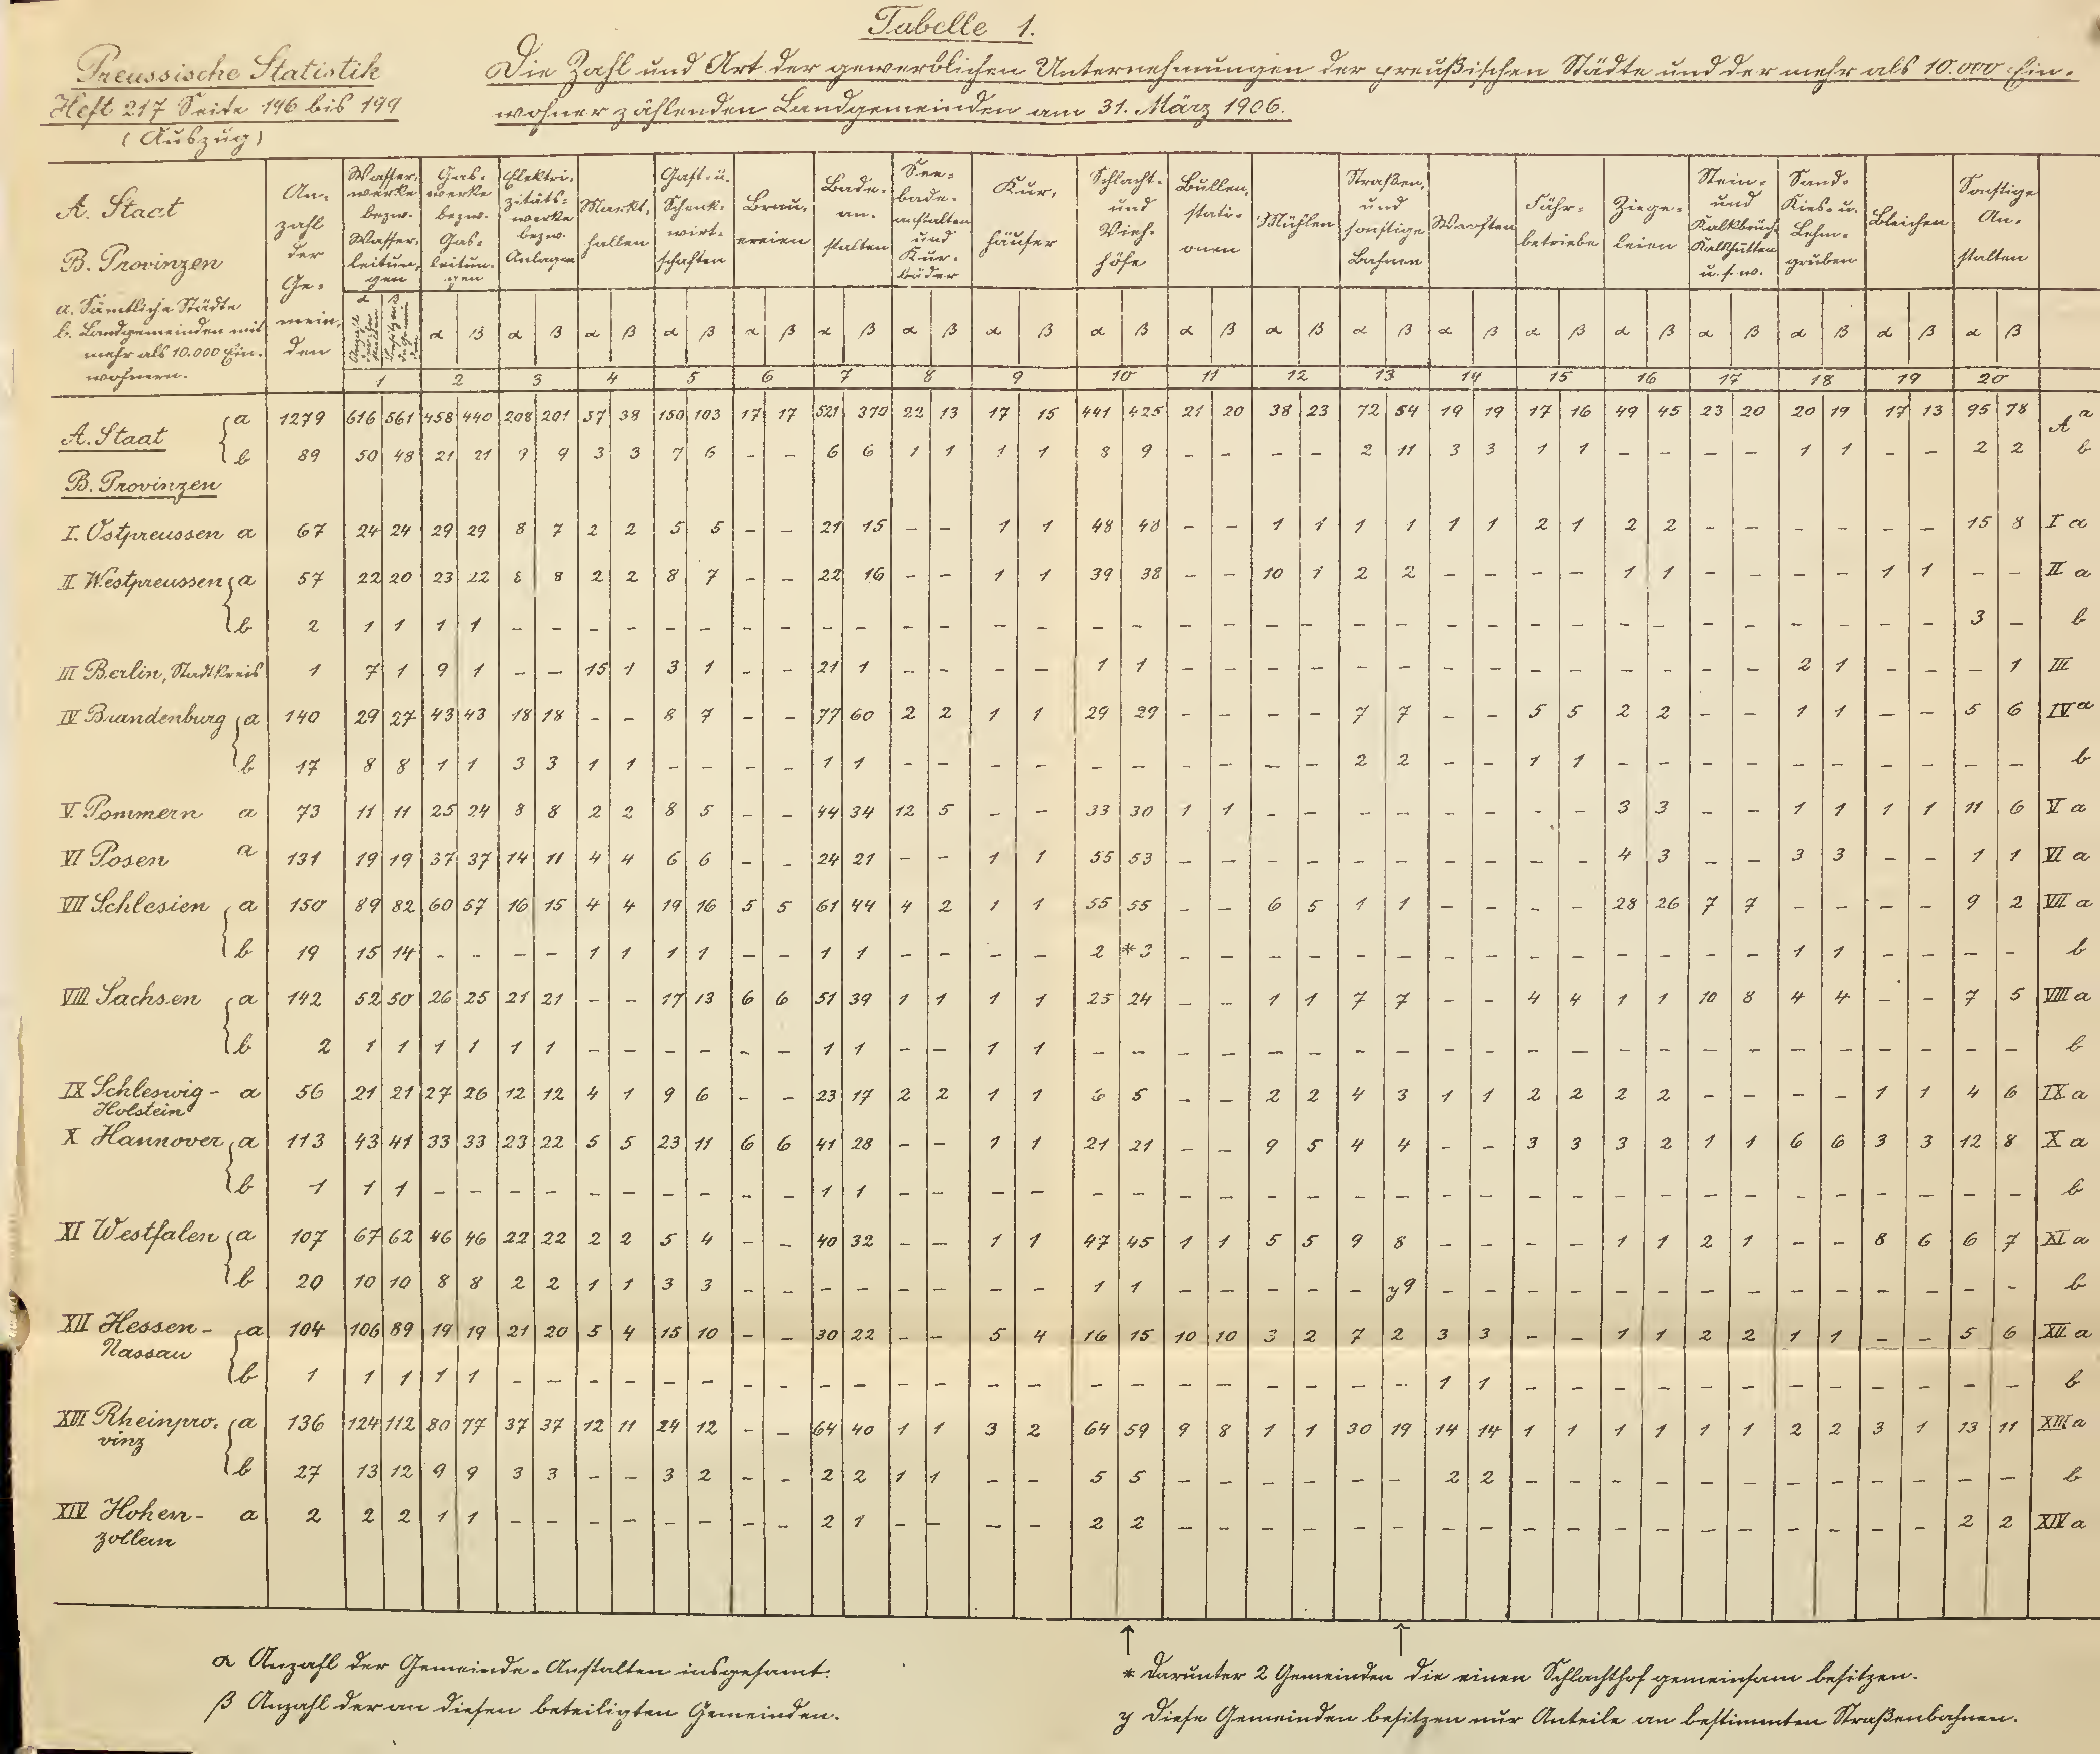 Tabelle 1.
Preussische Statistik
Heft 217 Seite 196 bis 199
(Auszug)
Die Zahl und Art der gewerblichen Unternehmungen der preußischen Städte und der mehr als 10.000 Ein-
wohner zählenden Landgemeinden am 31. März 1906.
A. Staat
B. Provinzen
a. Sämtliche Städte
b. Landgemeinden mit
mehr als 10.000 Ein-
wohnern.
An-
zahl
der
Ge-
mein-
den
Wasser-
werke
bezw.
Wasser-
leitun-
gen
Gas-
werke
bezw.
Gas-
leitun-
gen
Elektri-
zitäts-
werke
bezw.
Anlagen
Markt-
hallen
Gast- u.
Schenk-
wirt-
schaften
Brau-
ereien
Bade-
an-
stalten
See-
bade-
anstalten
und
Kur-
bäder
Kur-
häuser
Schlacht-
und
Vieh-
höfe
Bullen-
stati-
onen
Mühlen
Straßen-
und
sonstige
Bahnen
Werften
Fähr-
betriebe
Ziege-
leien
Stein-
und
Kalkbrüche
Kalkhütten
u.s.w.
Sand-
Kies- u.
Lehm-
gruben
Bleichen
Sonstige
An-
stalten
α β α β α β α β α β α β α β α β α β α β α β α β α β α β α β α β α β α β α β α β
1 2 3 4 5 6 7 8 9 10 11 12 13 14 15 16 17 18 19 20
A. Staat a 1279 616 561 458 440 208 201 57 38 150 103 17 17 521 370 22 13 17 15 441 425 21 20 38 23 72 54 19 19 17 16 49 45 23 20 20 19 17 13 95 78 A a
b 89 50 48 21 21 9 9 3 3 7 6 – – 6 6 1 1 1 1 8 9 – – – – 2 11 3 3 1 1 – – – – 1 1 – – 2 2 b
B. Provinzen
I. Ostpreussen a 67 24 24 29 29 8 7 2 2 5 5 – – 21 15 – – 1 1 48 48 – – 1 1 1 1 1 1 2 1 2 2 – – – – – – 15 8 I a
II Westpreussen a 57 22 20 23 22 8 8 2 2 8 7 – – 22 16 – – 1 1 39 38 – – 10 1 2 2 – – – – 1 1 – – – – 1 1 – – II a
b 2 1 1 1 1 – – – – – – – – – – – – – – – – – – – – – – – – – – – – – – – – – – 3 – b
III Berlin, Stadtkreis 1 7 1 9 1 – – 15 1 3 1 – – 21 1 – – – – 1 1 – – – – – – – – – – – – – – 2 1 – – – 1 III
IV Brandenburg a 140 29 27 43 43 18 18 – – 8 7 – – 77 60 2 2 1 1 29 29 – – – – 7 7 – – 5 5 2 2 – – 1 1 – – 5 6 IV a
b 17 8 8 1 1 3 3 1 1 – – – – 1 1 – – – – – – – – – – 2 2 – – 1 1 – – – – – – – – – – b
V. Pommern a 73 11 11 25 24 8 8 2 2 8 5 – – 44 34 12 5 – – 33 30 1 1 – – – – – – – – 3 3 – – 1 1 1 1 11 6 V a
VI Posen a 131 19 19 37 37 14 11 4 4 6 6 – – 24 21 – – 1 1 55 53 – – – – – – – – – – 4 3 – – 3 3 – – 1 1 VI a
VII Schlesien a 150 89 82 60 57 16 15 4 4 19 16 5 5 61 44 4 2 1 1 55 55 – – 6 5 1 1 – – – – 28 26 7 7 – – – – 9 2 VII a
b 19 15 14 – – – – 1 1 1 1 – – 1 1 – – – – 2 *3 – – – – – – – – – – – – – – 1 1 – – – – b
VIII Sachsen a 142 52 50 26 25 21 21 – – 17 13 6 6 51 39 1 1 1 1 25 24 – – 1 1 7 7 – – 4 4 1 1 10 8 4 4 – – 7 5 VIII a
b 2 1 1 1 1 1 1 – – – – – – 1 1 – – 1 1 – – – – – – – – – – – – – – – – – – – – – – b
IX Schleswig- a 56 21 21 27 26 12 12 4 1 9 6 – – 23 17 2 2 1 1 6 5 – – 2 2 4 3 1 1 2 2 2 2 – – – – 1 1 4 6 IX a
Holstein
X Hannover a 113 43 41 33 33 23 22 5 5 23 11 6 6 41 28 – – 1 1 21 21 – – 9 5 4 4 – – 3 3 3 2 1 1 6 6 3 3 12 8 X a
b 1 1 1 – – – – – – – – – – 1 1 – – – – – – – – – – – – – – – – – – – – – – – – – – b
XI Westfalen a 107 67 62 46 46 22 22 2 2 5 4 – – 40 32 – – 1 1 47 45 1 1 5 5 9 8 – – – – 1 1 2 1 – – 8 6 6 7 XI a
b 20 10 10 8 8 2 2 1 1 3 3 – – – – – – – – 1 1 – – – – – y9 – – – – – – – – – – – – – – b
XII Hessen- a 104 106 89 19 19 21 20 5 4 15 10 – – 30 22 – – 5 4 16 15 10 10 3 2 7 2 3 3 – – 1 1 2 2 1 1 – – 5 6 XII a
Nassau
b 1 1 1 1 1 – – – – – – – – – – – – – – – – – – – – – – 1 1 – – – – – – – – – – – – b
XIII Rheinpro- a 136 124 112 80 77 37 37 12 11 24 12 – – 64 40 1 1 3 2 64 59 9 8 1 1 30 19 14 14 1 1 1 1 1 1 2 2 3 1 13 11 XIII a
vinz
b 27 13 12 9 9 3 3 – – 3 2 – – 2 2 1 1 – – 5 5 – – – – – – 2 2 – – – – – – – – – – – – b
XIV Hohen- a 2 2 2 1 1 – – – – – – – – 2 1 – – – – 2 2 – – – – – – – – – – – – – – – – – – 2 2 XIV a
zollern
α Anzahl der Gemeinde-Anstalten insgesamt.
β Anzahl der an diesen beteiligten Gemeinden.
* Darunter 2 Gemeinden die einen Schlachthof gemeinsam besitzen.
y Diese Gemeinden besitzen nur Anteile an bestimmten Straßenbahnen.